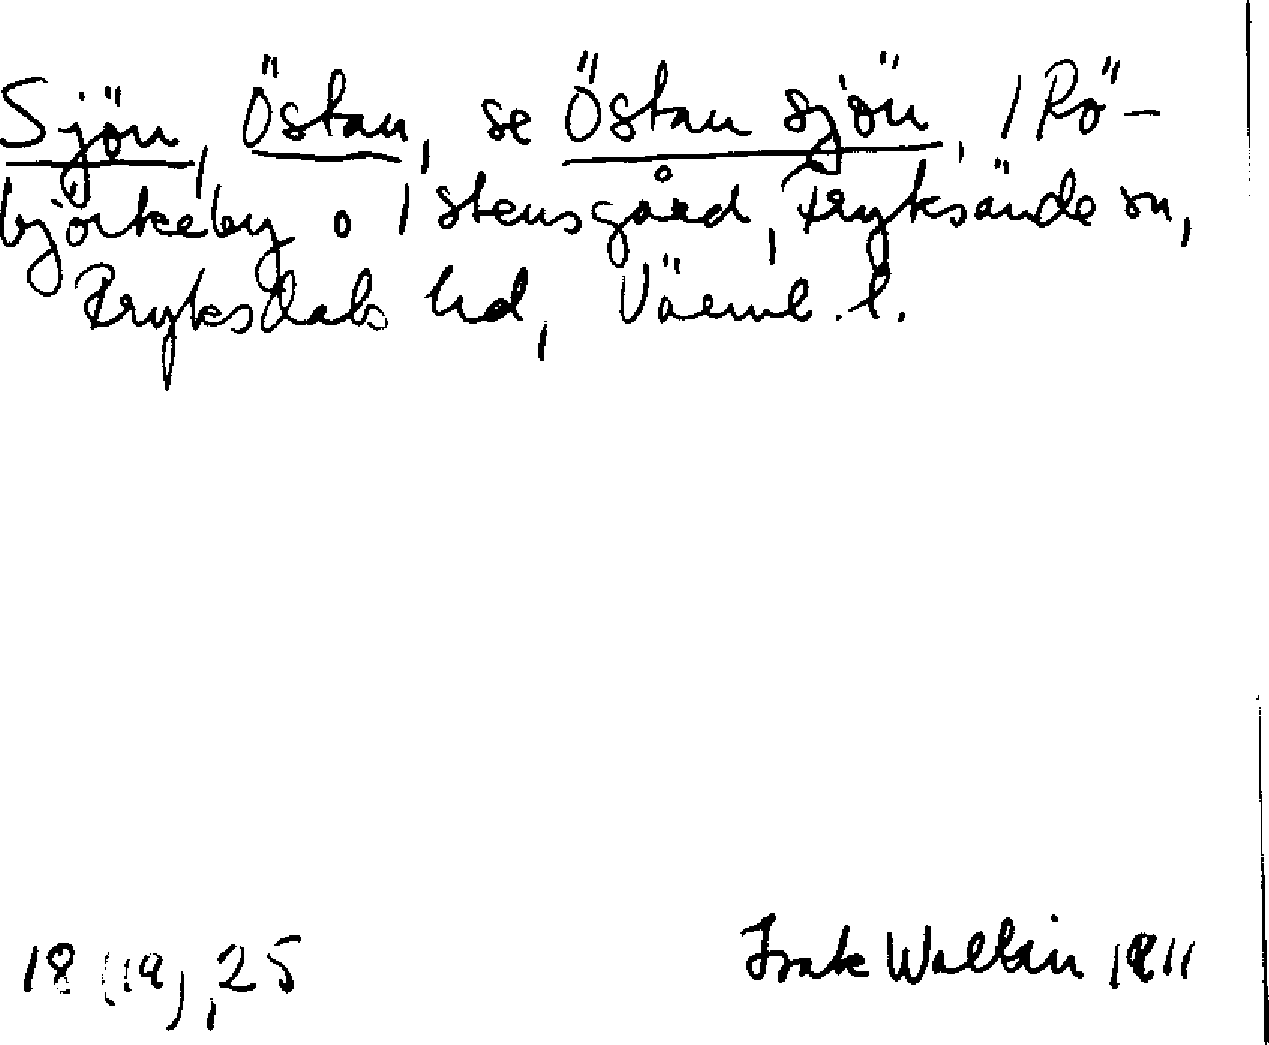 Sjön, Östan, se Östan sjön, / Rö-
björkeby o / stensgård, Fryksände sn,
Fryksdals hd, Värml. l.
18 (19), 25
Wallin 1911